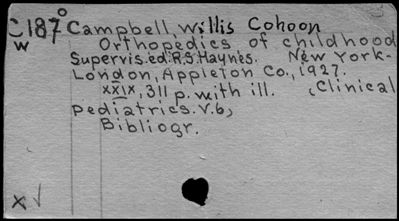 C187° Campbell, Willis Cohoon
w Orthopedics of childhood
Supervis. ed. R.S. Haynes. New York-
London, Appleton Co., 1927.
xxix, 311 p. with ill. (Clinical
pediatrics. V. 6)
Bibliogr.
x √